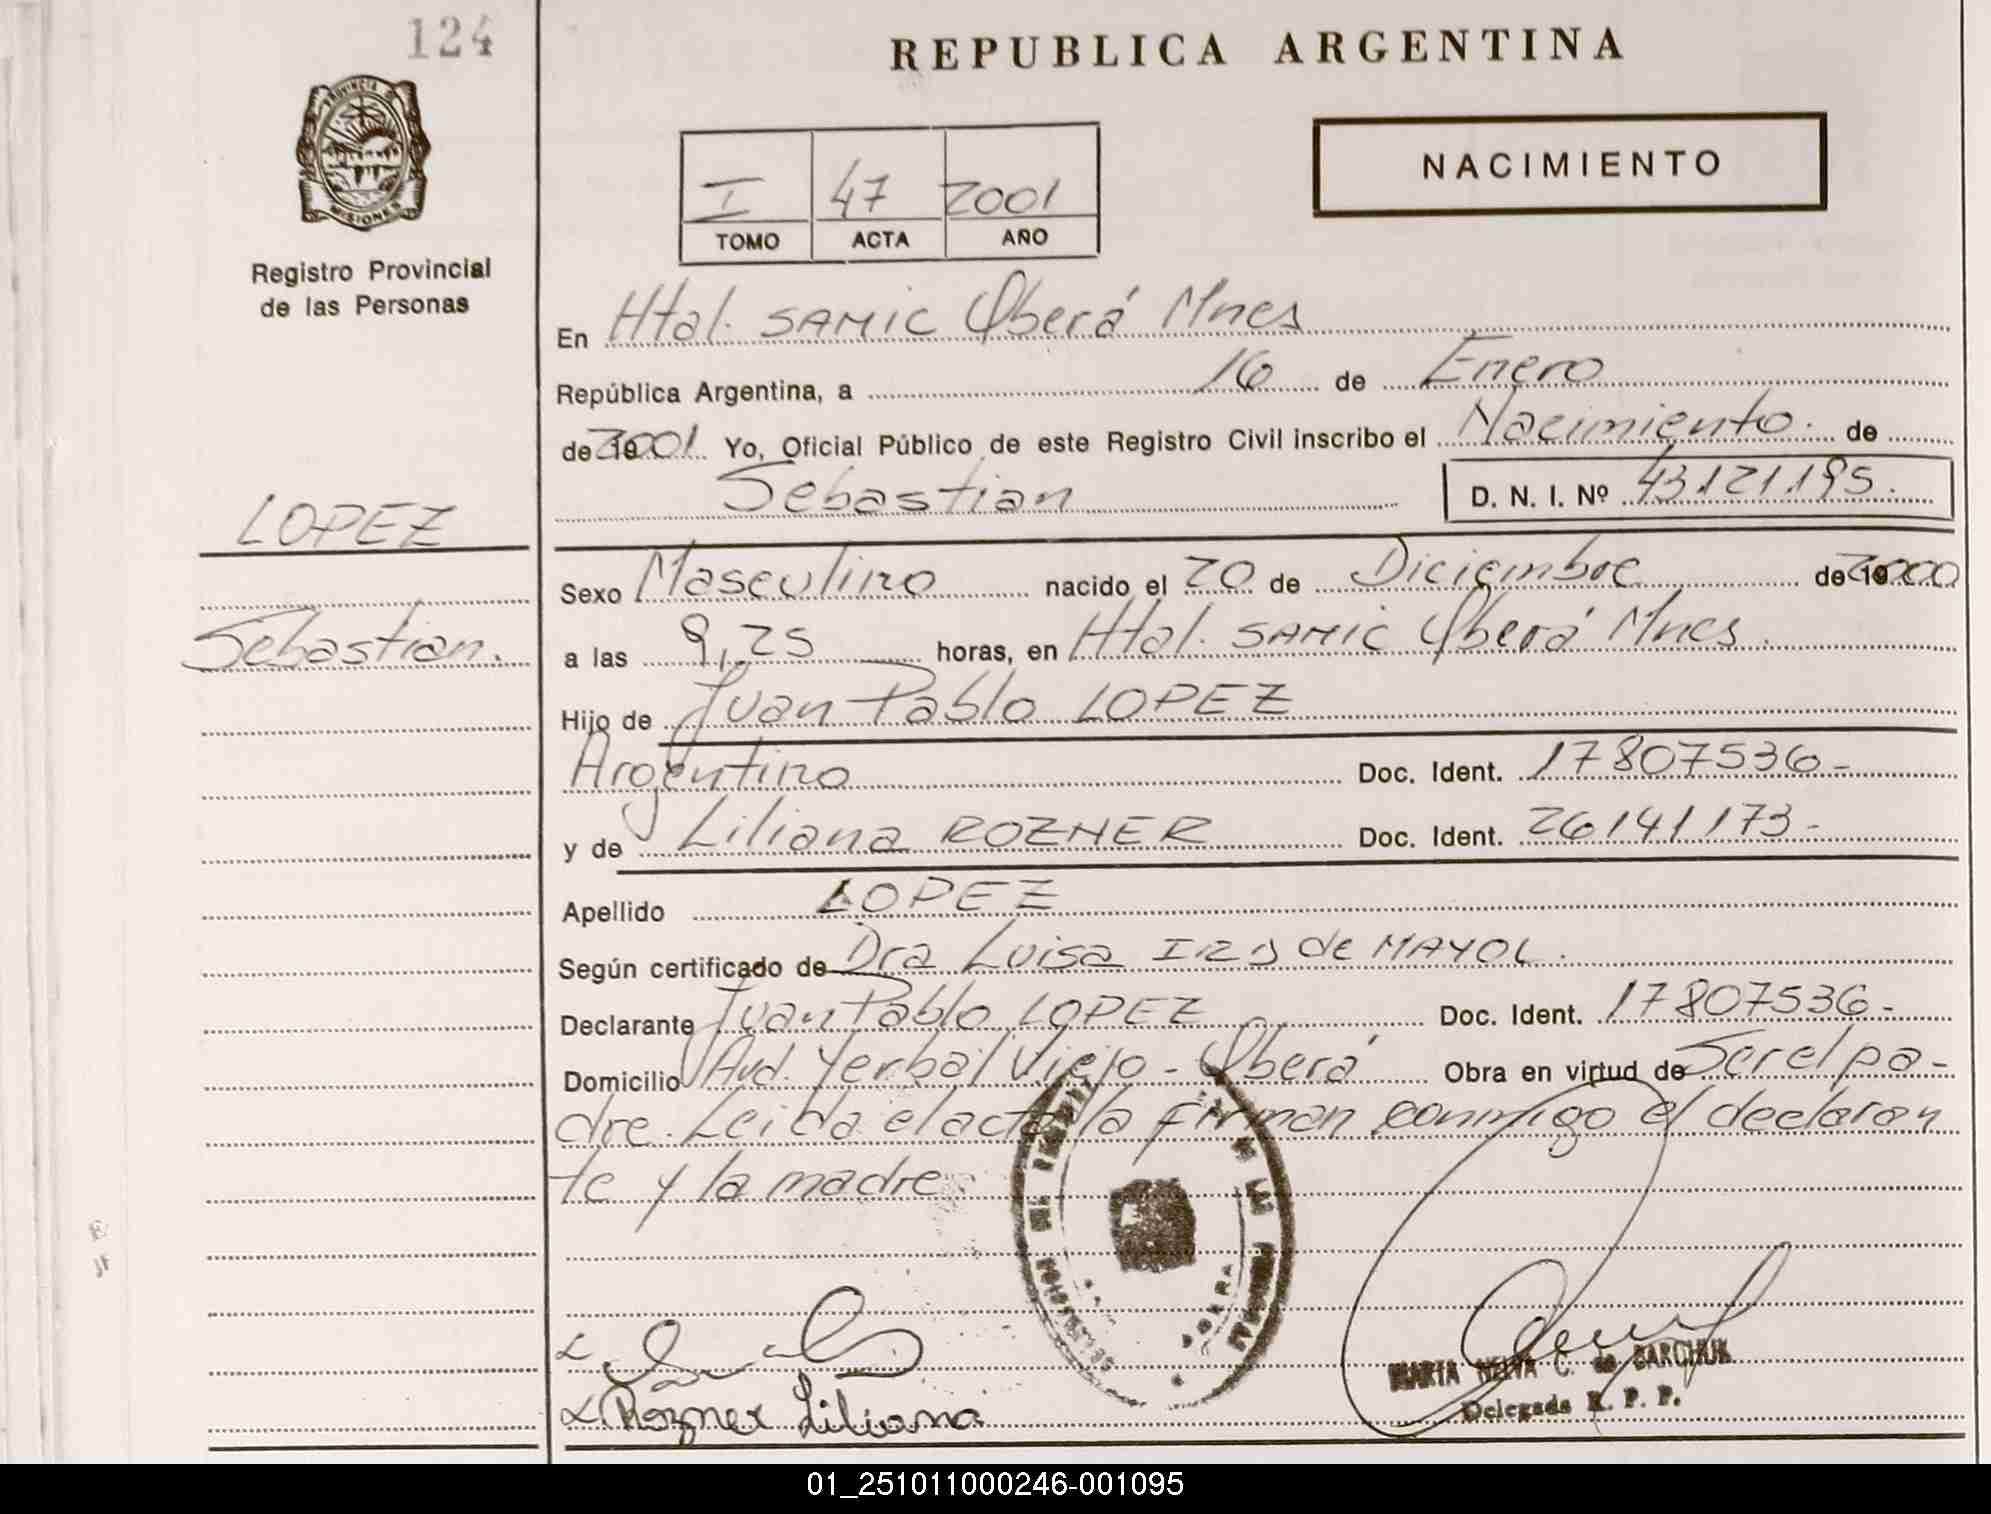 124
REPUBLICA ARGENTINA
PROVINCIA DE
MISIONES
NACIMIENTO
I 47 2001
TOMO ACTA AÑO
Registro Provincial
de las Personas
En Htal. SAMIC Oberá Mnes
República Argentina, a 16 de Enero
de 19 2001 Yo, Oficial Público de este Registro Civil inscribo el Nacimiento. de
Sebastian D. N. I. Nº 43.121.195.
LOPEZ
Sexo Masculino nacido el 20 de Diciembre de 19 2000
Sebastian.
a las 9,25 horas, en Htal. SAMIC Oberá Mnes.
Hijo de Juan Pablo LOPEZ
Argentino Doc. Ident. 17807536-
y de Liliana ROZNER Doc. Ident. 26141173-
Apellido LOPEZ
Según certificado de Dra Luisa de MAYOL.
Declarante Juan Pablo LOPEZ Doc. Ident. 17807536-
Domicilio Avd. Yerbal Viejo - Oberá Obra en virtud de Ser el pa-
dre. Leida el acta la firman conmigo el declaran
te y la madre.
MARTA C. de
Delegada R. P. P.
Rozner Liliana
01_251011000246-001095